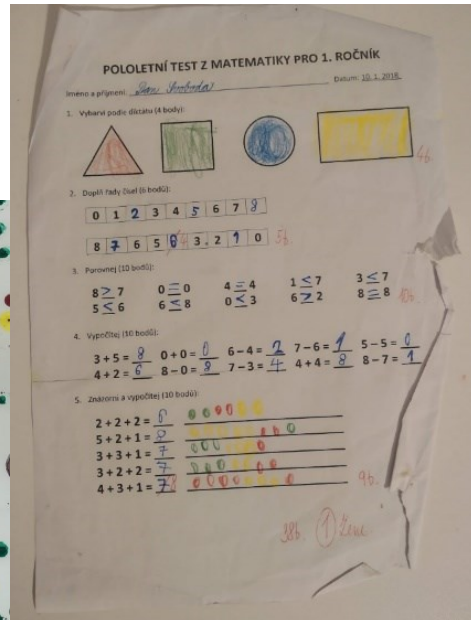 POLOLETNÍ TEST Z MATEMATIKY PRO 1. ROČNÍK
Jméno a příjmení: Dan Svoboda Datum: 10. 1. 2018
1. Vybarvi podle diktátu (4 body):
4b.
2. Doplň řady čísel (6 bodů):
0 1 2 3 4 5 6 7 8
8 7 6 5 3 . 2 1 0 5b.
3. Porovnej (10 bodů):
8 > 7 0 = 0 4 = 4 1 < 7 3 < 7
5 < 6 6 < 8 0 < 3 6 > 2 8 = 8 10b.
4. Vypočítej (10 bodů):
3 + 5 = 8 0 + 0 = 0 6 – 4 = 2 7 – 6 = 1 5 – 5 = 0
4 + 2 = 6 8 – 0 = 8 7 – 3 = 4 4 + 4 = 8 8 – 7 = 1
5. Znázorni a vypočítej (10 bodů):
2 + 2 + 2 = 6
5 + 2 + 1 = 8
3 + 3 + 1 = 7
3 + 2 + 2 = 7
4 + 3 + 1 = 7 8 9b.
38b. 1